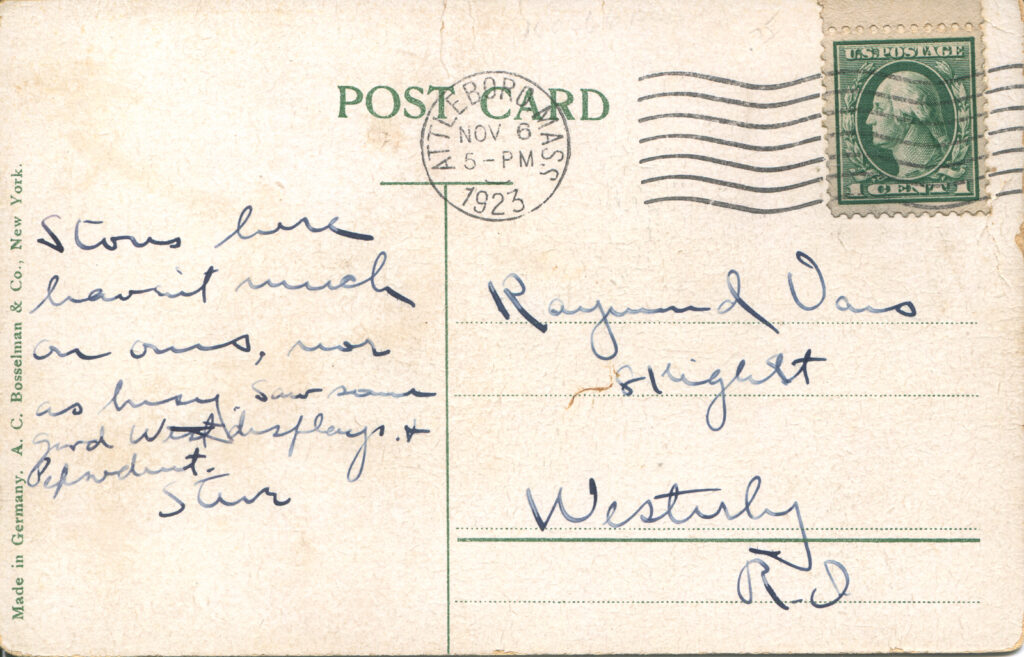 POST CARD
ATTLEBORO MASS
NOV 6
5-PM
1923
U.S. POSTAGE
1 CENT 1
Made in Germany. A. C. Bosselman & Co., New York.
Stores here
haven't much
on ours, nor
as busy. Saw some
good West displays. +
Pepsodent.
Steve
Raymond
High St
Westerly
R.I